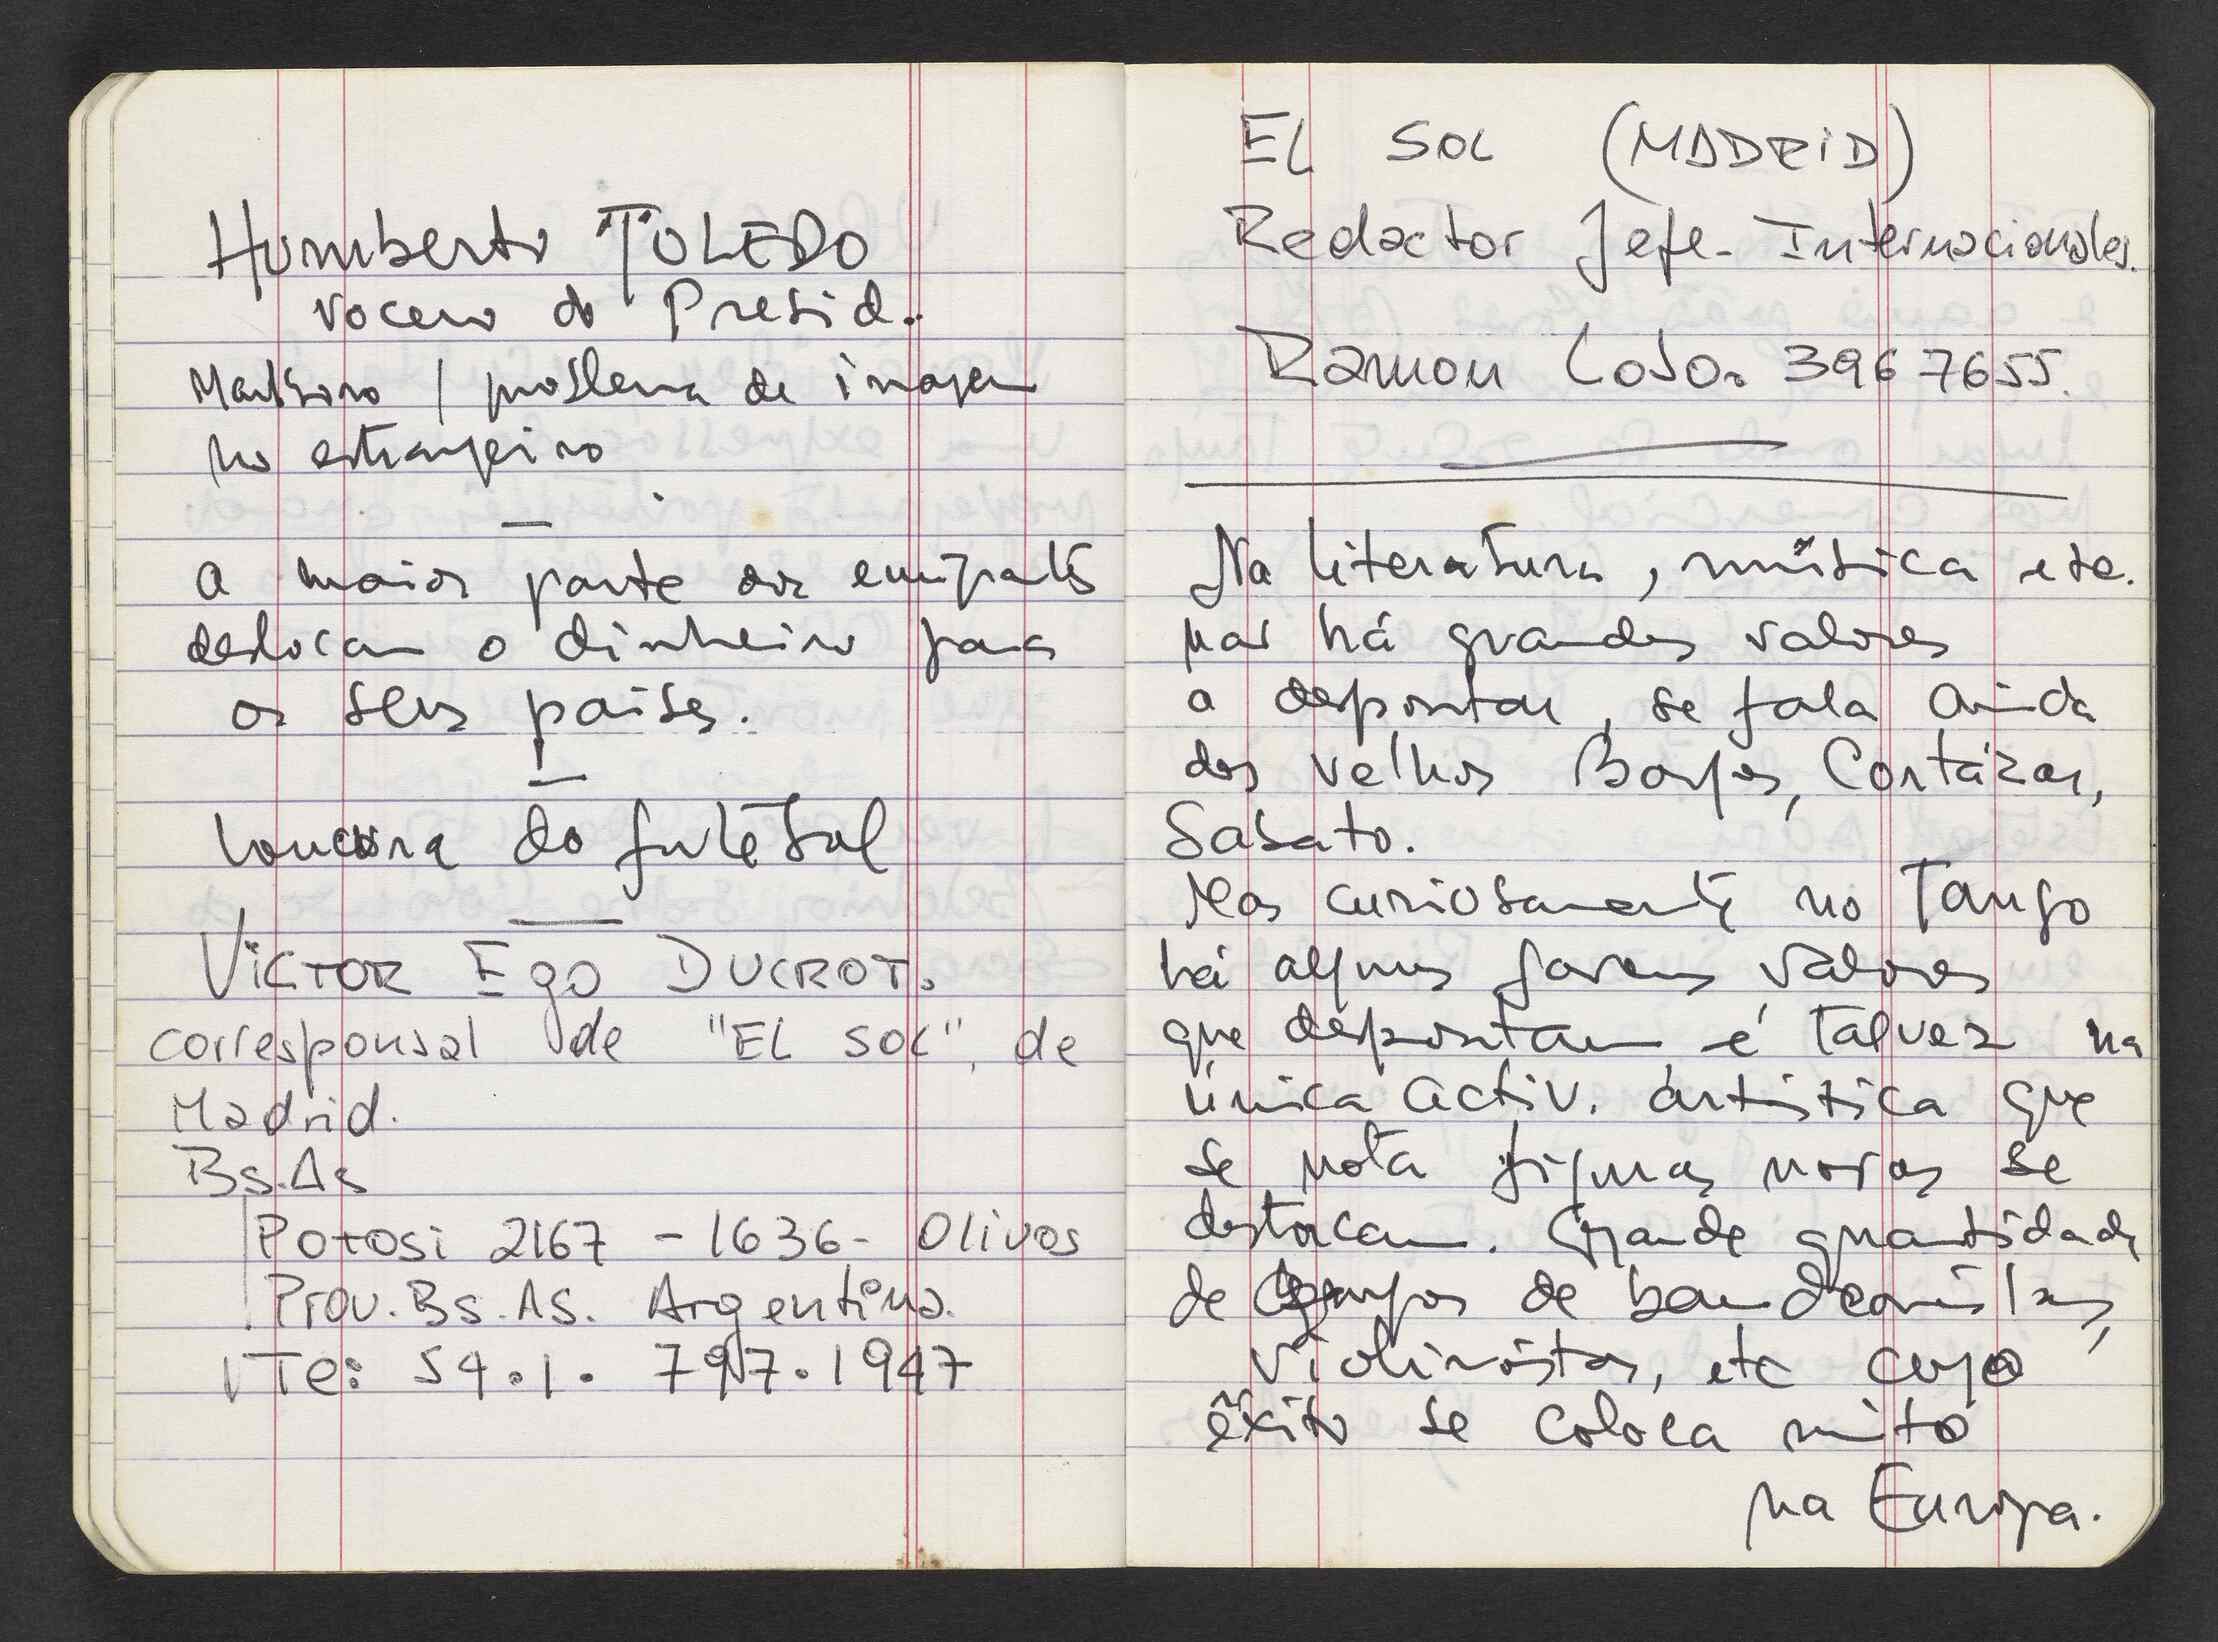 Humberto TOLEDO
vocero do Presid.
problema de imagem
no estrangeiro
a maior parte dos emigrantes
deslocam o dinheiro para
os seus países.
loucura do futebol
VICTOR Ego DUCROT.
corresponsal de "EL SOL", de
Madrid.
Bs.As
Potosi 2167 - 1636 - Olivos
Prov. Bs. As. Argentina.
Te: 54.1. 797.1947
EL SOL (MADRID)
Redactor Jefe - Internacionales.
Ramon 3967655.
Na literatura, música etc.
não há grandes valores
a despontar, se fala ainda
dos velhos Borges, Cortázar,
Sabato.
Mas curiosamente no Tango
há alguns jovens valores
que despontam é talvez na
única activ. artística que
se nota figuras novas se
destacam. Grande quantidade
de grupos de bandeonistas,
violinistas, etc cujo
êxito se coloca muito
na Europa.